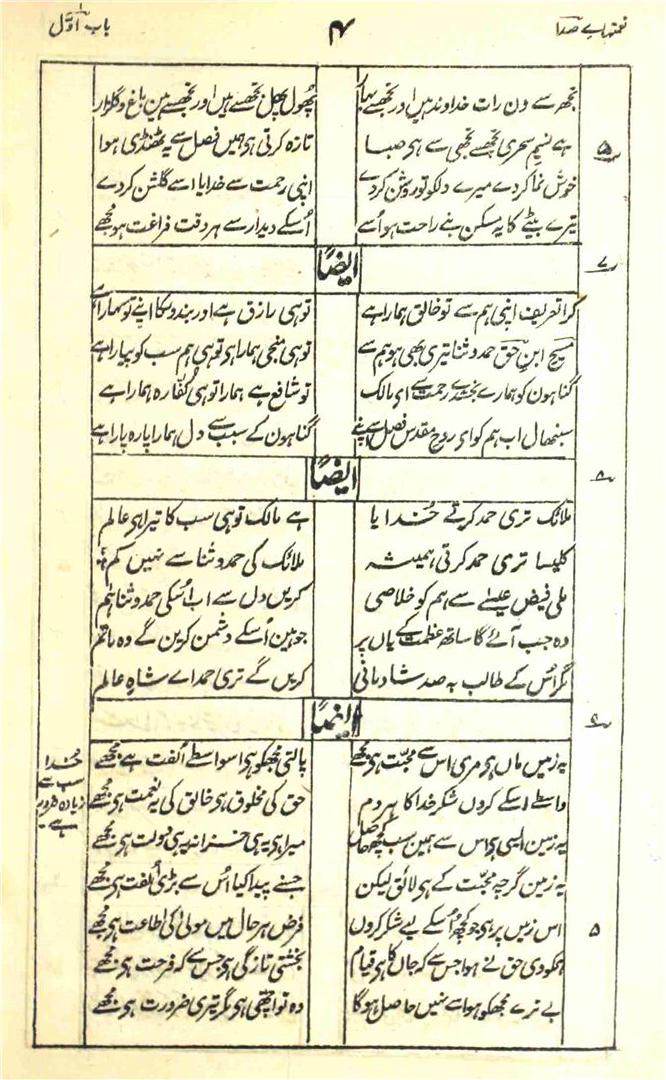 نغمتہاے صدا ۴ باب اوّل
تجھ سے دن رات خداوند ہیں اور تجھسے بہار پھُول پھل تجھسے ہیں اور تجھسے ہین باغ و گلزار
۵ ہے نسیمِ سحری تجھسے تجھی سے ہی صبا تازہ کرتی ہی ہمیں فصل سے یہ ٹھنڈی ہوا
خوش نما کردے میرے دلکو تو روشن کردے اپنی رحمت سے خدایا اسے گلشن کردے
تیرے بیٹے کا یہ مسکن بنے راحت ہو اُسے اُسکے دیدار سے ہر وقت فراغت ہو مجھے
۷ ایضًا
کرا تعریف اپنی ہم سے تو خالق ہمارا ہے توہی رازق ہے اور بندونکا اپنے تو سہارا ہے
مسیح ابنِ حق حمد و ثنا تیری بھی ہو ہم سے توہی منجی ہمارا ہو توہی ہم سب کو پیارا ہے
گناہون کو ہمارے بخشدے رحمت سے ای مالک تو شافع ہے ہمارا توہی کفّارہ ہمارا ہے
سنبھال اب ہم کو ای روح مقدس فصل سے اپنے گناہون کے سبب سے دل ہمارا پارہ پارا ہے
۸ ایضًا
ملائک تری حمد کرتے خُدایا ہے مالک توہی سب کا تیرا ہی عالم
کلیسا تری حمد کرتی ہمیشہ ملائک کی حمد و ثنا سے نہیں کم
ملی فیض عیسےٰ سے ہم کو خلاصی کریں دل سے اب اُسکی حمد و ثنا ہم
وہ جب آئے گا ساتھ عظمت کے یاں پر جو ہین اُسکے دشمن کرین گے وہ ماتم
مگر اُس کے طالب بہ صد شادمانی کریں گے تری حمد اے شاہِ عالم
۹ ایضًا
یہ زمین ماں ہی مری اس سے محبّت ہی مجھے پالتی مجھکو ہی اسواسطے اُلفت ہے مجھے
خُدا سب سے زیادہ ضرور ہے۔
واسطے اسکے کروں شکر خدا کا ہر دم حق کی مخلوق ہی خالق کی یہ نعمت ہی مجھے
یہ زمین ایسی ہی اس سے ہمین سب کچھ حاصل میرا ہی یہ ہی خزانہ یہی دولت ہی مجھے
یہ زمین گرچہ محبّت کے ہی لائق لیکن جسنے پیدا کیا اُس سے بڑی اُلفت ہی مجھے
۵ اس زمیں پر ہی جو کچھ اُسکے لیے شکر کروں فرض ہر حال میں مولیٰ کی اطاعت ہی مجھے
ہمکو دی حق نے ہوا جس سے کہ جاں کا ہی قیام بخشتی تازگی ہی جس سے کہ فرحت ہی مجھے
بے ترے مجھکو ہوا سے نہیں حاصل ہوگا وہ تو اچھی ہی مگر تیری ضرورت ہی مجھے